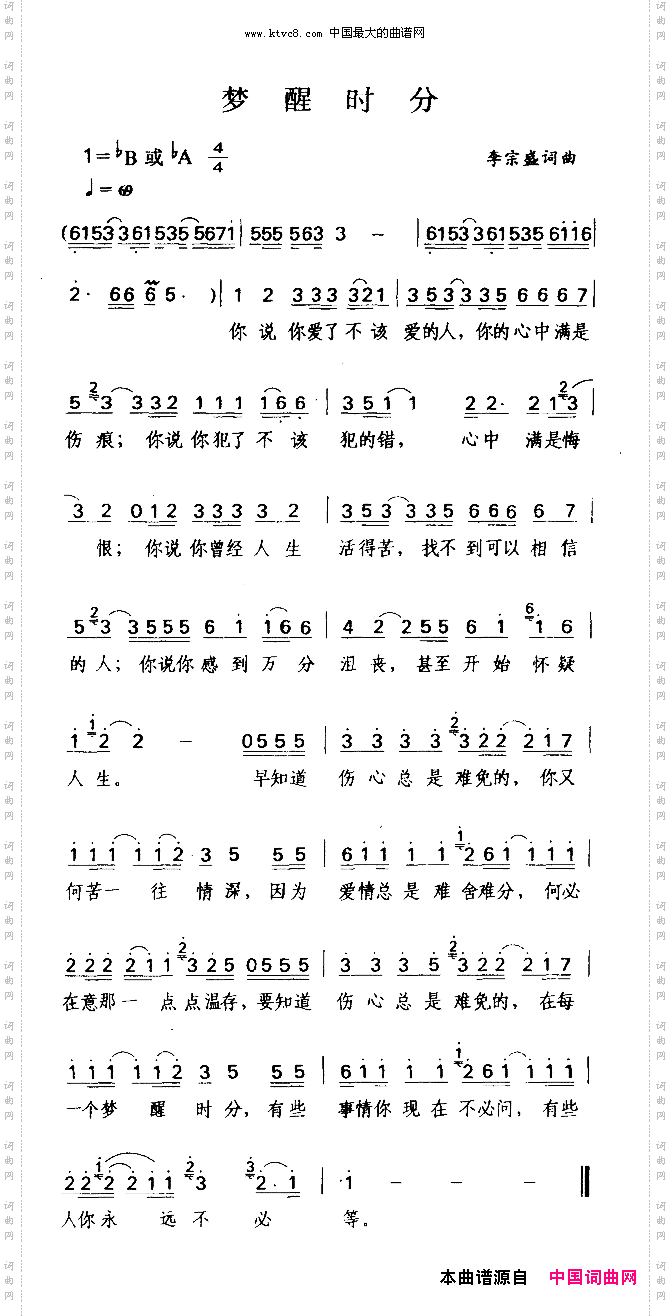 www.ktvc8.com 中国最大的曲谱网
梦 醒 时 分
1=♭B或♭A 4/4
李宗盛词曲
(6153 36153556 71 | 555 5563 3 - | 6153 3615355 6116 |
2· 66 6 5· ) | 1 2 333 3321 | 353 3335 666 67 |
你 说 你爱了不该 爱的人,你的心中满是
5 3 332 111 166 | 3511 1 22· 213 |
伤 痕; 你说你犯了不该 犯的错, 心中 满是悔
3 2 012 333 32 | 353 3335 666 67 |
恨; 你说你曾经人生 活得苦,找不到可以相信
53 3555 61 166 | 42 2555 61 16 |
的人;你说你感到万分 沮丧,甚至开始怀疑
12 2 - 0555 | 33 33 322 2217 |
人生。 早知道 伤心总是难免的,你又
111 112 35 55 | 611 11 261 1111 |
何苦一 往 情深,因为 爱情总是难舍难分,何必
222 211 325 0555 | 33 35 322 2217 |
在意那一点点温存,要知道 伤心总是难免的,在每
111 112 35 55 | 611 11 261 1111 |
一个梦 醒 时分,有些 事情你现在不必问,有些
222 211 3 2·1 | 1 - - - ‖
人你永 远不 必 等。
本曲谱源自 中国词曲网
词曲网